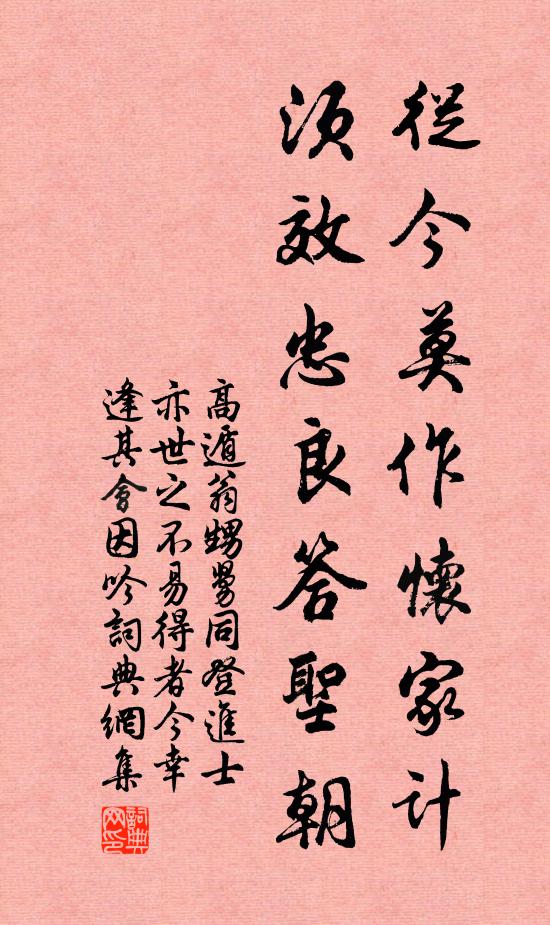 從今莫作懷家計
須效忠良答聖朝
高遁翁甥舅同登進士
亦世之不易得者今幸
逢其會因吟詞典網集
詞典
网印